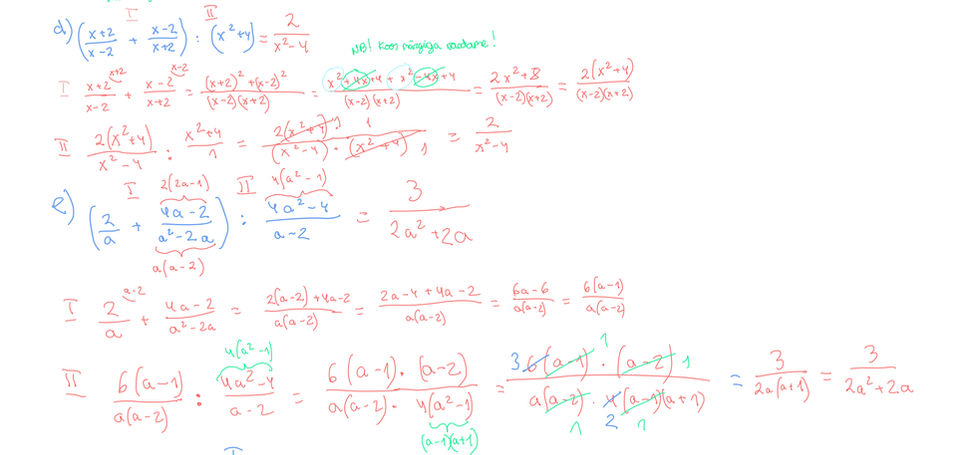 I II
d) ((x+2)/(x-2) + (x-2)/(x+2)) : (x²+4) = 2/(x²-4)
NB! Koos märgiga vaadame!
I (x+2)^(x+2)/(x-2) + (x-2)^(x-2)/(x+2) = ((x+2)²+(x-2)²)/((x-2)(x+2)) = (x²+4x+4+x²-4x+4)/((x-2)(x+2)) = (2x²+8)/((x-2)(x+2)) = 2(x²+4)/((x-2)(x+2))
II 2(x²+4)/(x²-4) : (x²+4)/1 = 2(x²+4)·1/((x²-4)·(x²+4)) 1 1 = 2/(x²-4)
I 2(2a-1) II 4(a²-1)
e) (2/a + (4a-2)/(a²-2a)) : (4a²-4)/(a-2) = 3/(2a²+2a)
a(a-2)
I 2^(a-2)/a + (4a-2)/(a²-2a) = (2(a-2)+4a-2)/(a(a-2)) = (2a-4+4a-2)/(a(a-2)) = (6a-6)/(a(a-2)) = 6(a-1)/(a(a-2))
4(a²-1)
II 6(a-1)/(a(a-2)) : (4a²-4)/(a-2) = 6(a-1)·(a-2)/(a(a-2)·4(a²-1)) = 3 6(a-1) 1·(a-2) 1/(a(a-2)·4(a-1)(a+1)) = 3/(2a(a+1)) = 3/(2a²+2a)
(a-1)(a+1) 1 2 1
I